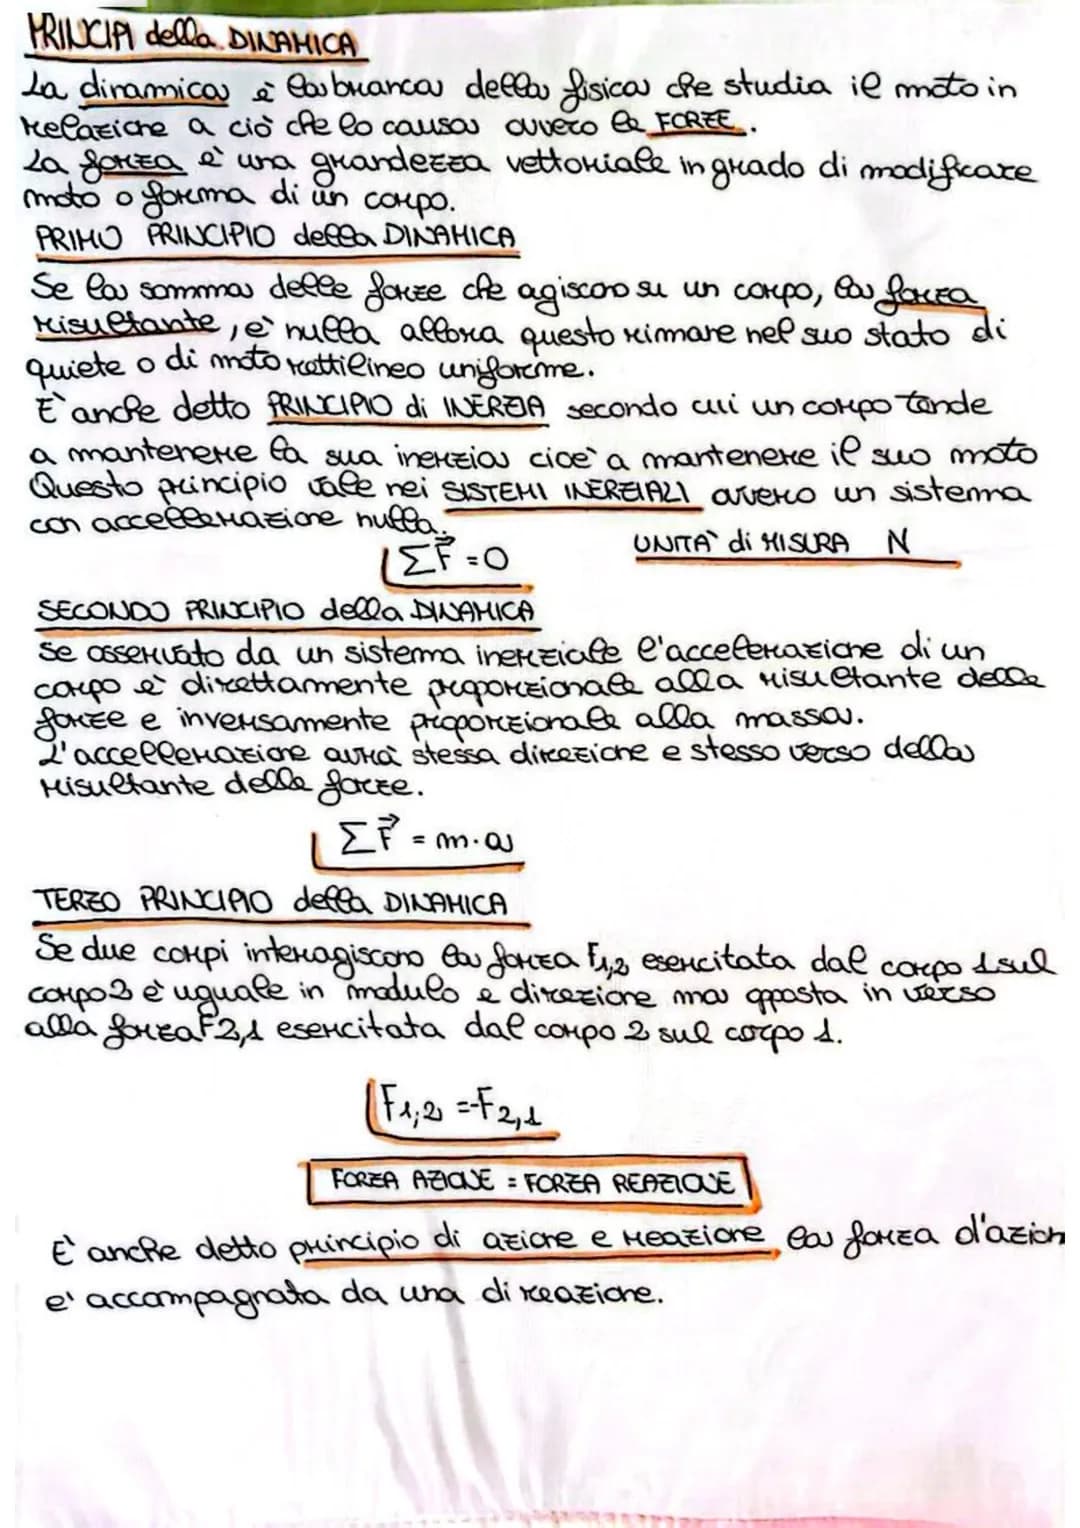 PRINCIPI della DINAMICA
La dinamica è la branca della fisica che studia il moto in
relazione a ciò che lo causa ovvero le FORZE.
La forza è una grandezza vettoriale in grado di modificare
moto o forma di un corpo.
PRIMO PRINCIPIO della DINAMICA
Se la somma delle forze che agiscono su un corpo, la forza
risultante, è nulla allora questo rimane nel suo stato di
quiete o di moto rettilineo uniforme.
E' anche detto PRINCIPIO di INERZIA secondo cui un corpo tende
a mantenere la sua inerzia cioè a mantenere il suo moto
Questo principio vale nei SISTEMI INERZIALI ovvero un sistema
con accellerazione nulla.
ΣF⃗ = 0 UNITA' di MISURA N
SECONDO PRINCIPIO della DINAMICA
Se osservato da un sistema inerziale l'accelerazione di un
corpo è direttamente proporzionale alla risultante delle
forze e inversamente proporzionale alla massa.
L'accellerazione avrà stessa direzione e stesso verso della
risultante delle forze.
ΣF⃗ = m·a
TERZO PRINCIPIO della DINAMICA
Se due corpi interagiscono la forza F1,2 esercitata dal corpo 1 sul
corpo 2 è uguale in modulo e direzione ma opposta in verso
alla forza F2,1 esercitata dal corpo 2 sul corpo 1.
F1,2 = -F2,1
FORZA AZIONE = FORZA REAZIONE
E' anche detto principio di azione e reazione la forza d'azion
e' accompagnata da una di reazione.